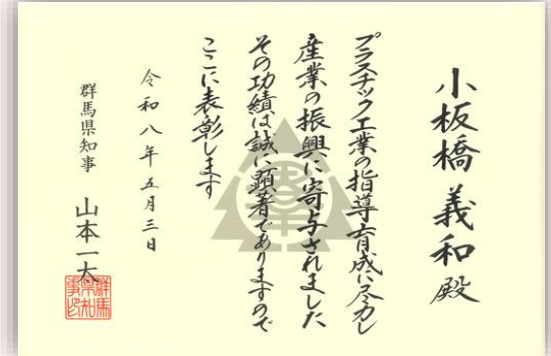 小板橋義和殿
プラスチック工業の指導育成に尽力し
産業の振興に寄与されました
その功績は誠に顕著でありますので
ここに表彰します
令和八年五月三日
群馬県知事 山本一太
群馬県知事印